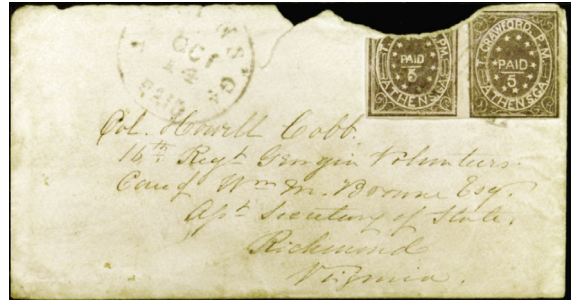 OCT
14
PAID
T. CRAWFORD. P.M.
PAID
5
ATHENS.GA.
T. CRAWFORD. P.M.
PAID
5
ATHENS.GA.
Col. Howell Cobb.
16th Regt Georgia Volunteers.
Care of Wm M. Browne Esq.
Asst Secretary of State.
Richmond
Virginia.